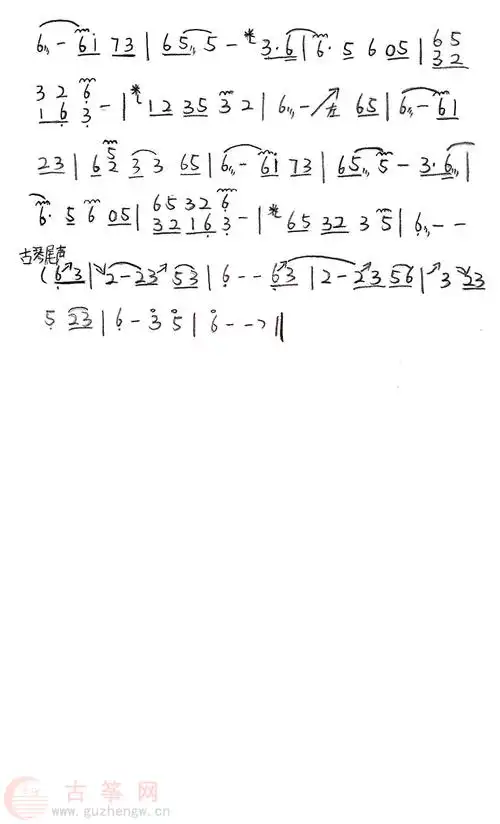 6 - 6 i 7 3 | 6 5 5 - 3 · 6 | 6 · 5 6 0 5 | 6 5
3 2
3 2 6
1 6 3 - | 1 2 3 5 3 2 | 6 - 左 6 5 | 6 - 6 1
2 3 | 6 2 3 3 6 5 | 6 - 6 i 7 3 | 6 5 5 - 3 · 6 |
6 · 5 6 0 5 | 6 5 3 2 6
3 2 1 6 3 - | 6 5 3 2 3 5 | 6 - -
古琴尾声
( 6 3 | 2 - 2 3 5 3 | 6 - - 6 3 | 2 - 2 3 5 6 | 3 2 3
5 2 3 | 6 - 3 5 | 6 - - ) ||
古筝网
www.guzhengw.cn